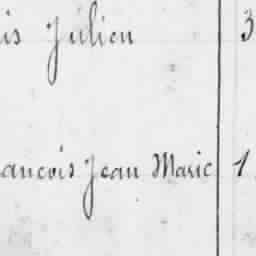 is Julien 3
ancois Jean Marie 1